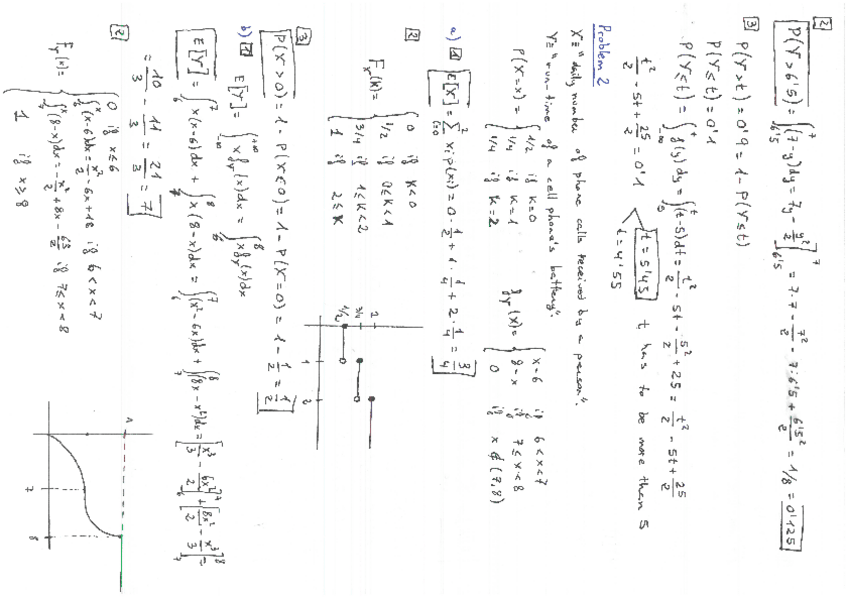 2
P(Y > 6'5) = ∫_{6'5}^{7} (7-y)dy = 7y - y²/2 ]_{6'5}^{7} = 7·7 - 7²/2 - 7·6'5 + 6'5²/2 = 1/8 = 0'125
3
P(Y > t) = 0'9 = 1 - P(Y ≤ t)
P(Y ≤ t) = 0'1
P(Y ≤ t) = ∫_{-∞}^{t} f(y)dy = ∫_{5}^{t} (t-5)dt = t²/2 - 5t - 5²/2 + 25 = t²/2 - 5t + 25/2
t²/2 - 5t + 25/2 = 0'1 t = 5'45 t has to be more than 5
t = 4'55
Problem 2
X ≡ "daily number of phone calls received by a person".
Y ≡ "run-time of a cell phone's battery".
P(X=x) = { 1/2 if k=0
1/4 if k=1
1/4 if k=2
f_Y(x) = { x-6 if 6<x<7
8-x if 7≤x<8
0 if x∉(7,8)
a) 1 E[X] = Σ_{i=0}^{2} xi p(xi) = 0·1/2 + 1·1/4 + 2·1/4 = 3/4
2 F_X(k) = { 0 if k<0
1/2 if 0≤k<1
3/4 if 1≤k<2
1 if 2≤k
1/2 3/4 1 2
3 P(X > 0) = 1 - P(X ≤ 0) = 1 - P(X=0) = 1 - 1/2 = 1/2
b) 1 E[Y] = ∫_{-∞}^{+∞} x f_Y(x)dx = ∫_{6}^{8} x f_Y(x)dx
E[Y] = ∫_{6}^{7} x(x-6)dx + ∫_{7}^{8} x(8-x)dx = ∫_{6}^{7} (x²-6x)dx + ∫_{7}^{8} (8x-x²)dx = [x³/3 - 6x²/2]_{6}^{7} + [8x²/2 - x³/3]_{7}^{8} =
= 10/3 - 11/3 = 21/3 = 7
2
F_Y(x) = { 0 if x≤6
∫_{6}^{x} (x-6)dx = x²/2 - 6x + 18 if 6<x<7
∫_{7}^{x} (8-x)dx = -x²/2 + 8x - 63/2 if 7≤x<8
1 if x≥8
1 7 8